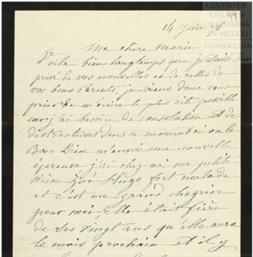 14 Juin
Ma chère Marie
Voilà bien longtemps que je suis
privé de vos nouvelles et de celles de
vos bons parents, je viens donc vous
prier de m'écrire le plus vite possible
car j'ai besoin de consolation et de
distractions dans ce moment où le
Bon Dieu m'envoie une nouvelle
épreuve j'ai chez moi ma petite
nièce fort malade
et c'est un grand chagrin
pour moi. Elle était fière
de ses vingt ans qu'elle aura
le mois prochain et il y